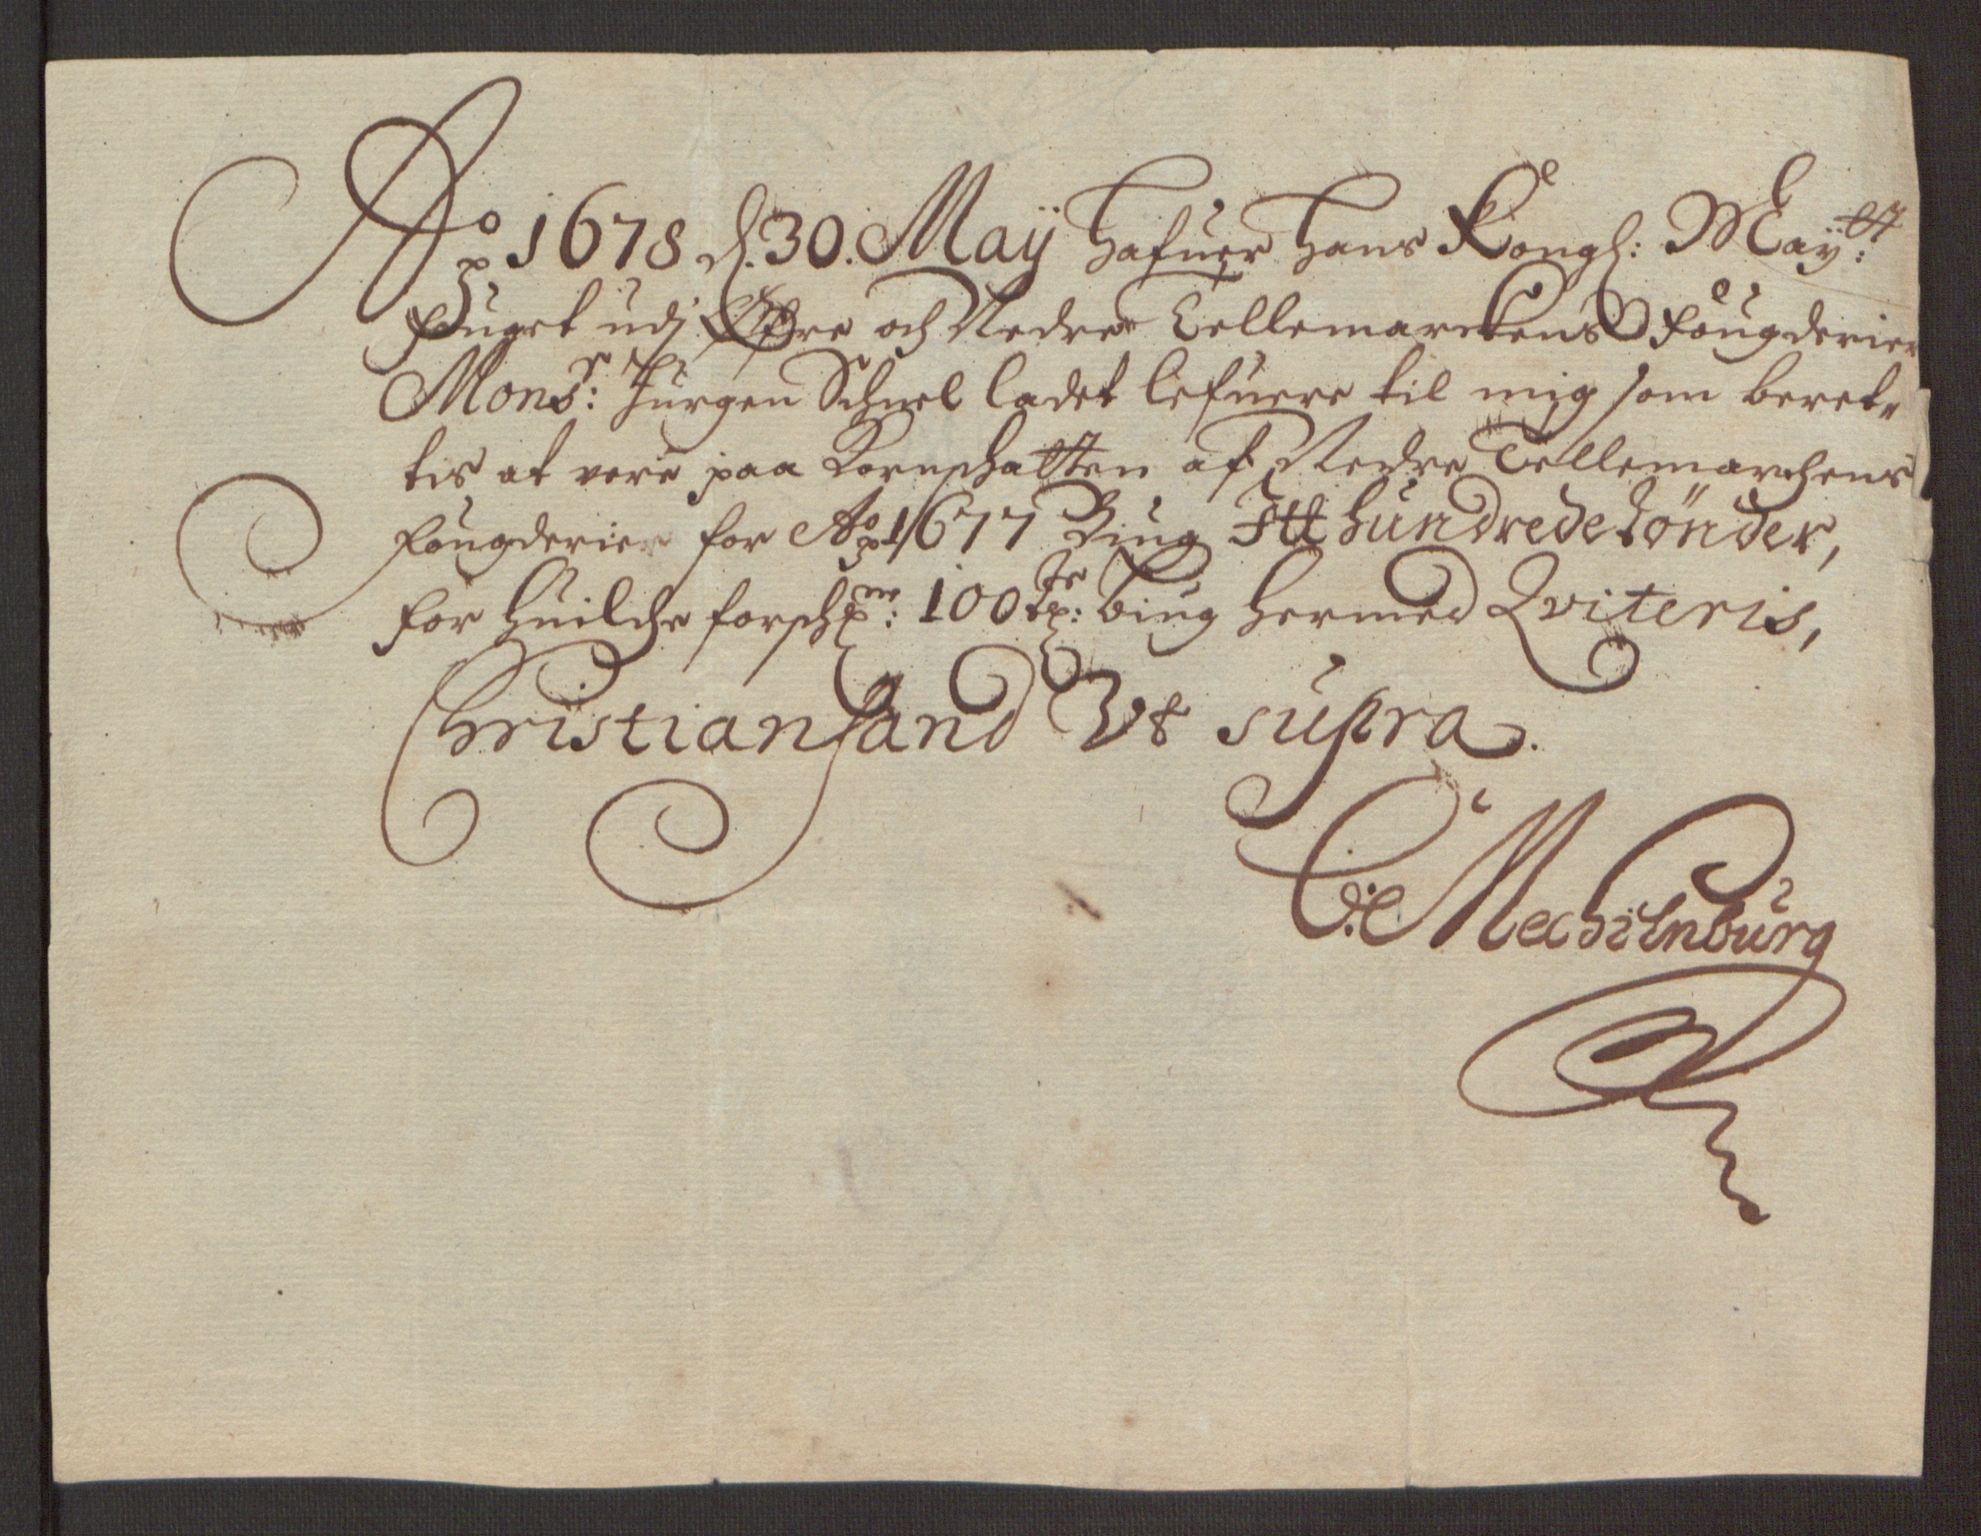 Ao 1678 d. 30. Maÿ hafuer hans Kongl: Maÿtt:
fouget udj Øfre och Nedre Tellemarckens fougderier
Monsr: Jürgen Schnel ladet lefuere til mig som beret-
tis at vere paa Kornschatten af Nedre Tellemarchens
fougderier for Ao 1677 Biug Itt hundrede tønder,
for huilche forschne: 100 tr: biug hermed Qviteris,
Christiansand Vt supra.
Mechlenburg